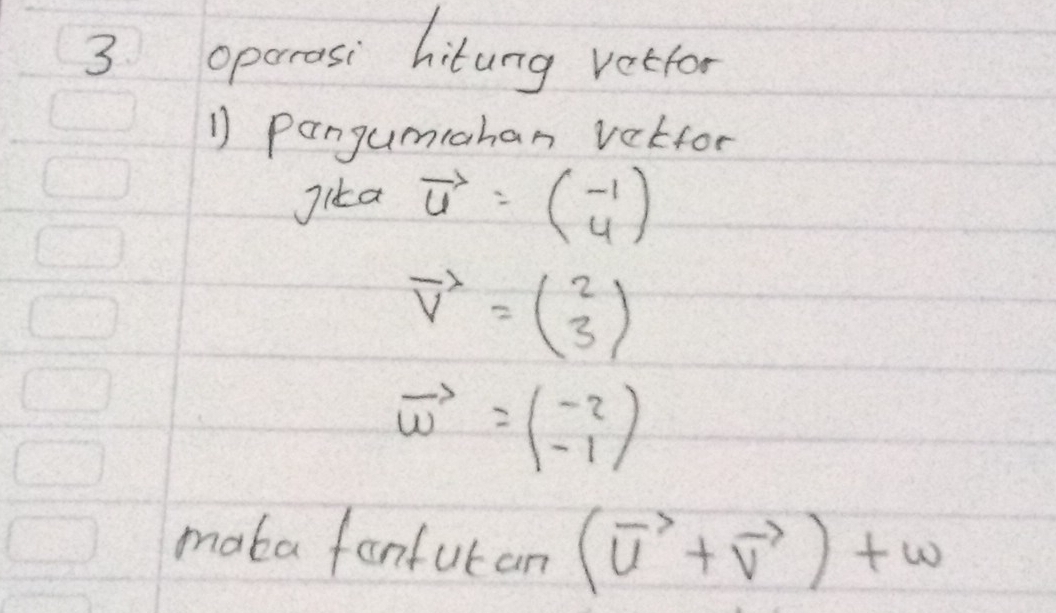 3 oparasi hitung vektor
1) Pangumlahan vektor
jika u⃗ = (-1 4)
v⃗ = (2 3)
w⃗ = (-2 -1)
maka tantukan (u⃗ + v⃗) + w